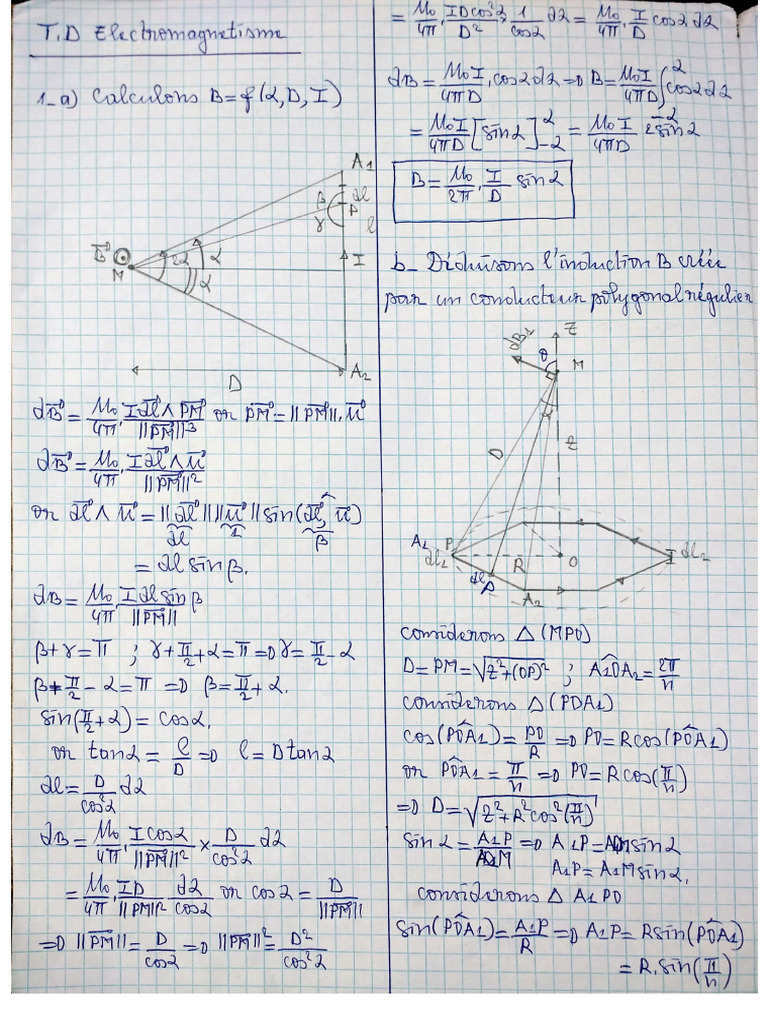 T.D Electromagnetisme
1-a) Calculons B=f(α,D,I)
A1
β
dl
P
γ
l
B⃗
M
2α
α
α
I
A2
D
dB⃗ = μ0/4π · I dl⃗ ∧ PM⃗/||PM⃗||³ or PM⃗ = ||PM⃗||.u⃗
dB⃗ = μ0/4π · I dl⃗ ∧ u⃗/||PM⃗||²
or dl⃗ ∧ u⃗ = ||dl⃗|| ||u⃗|| sin(dl⃗, u⃗)
dl 1 β
= dl sin β.
dB = μ0/4π · I dl sin β/||PM⃗||
β+γ=π ; γ+π/2+α=π => γ=π/2-α
β+π/2-α=π => β=π/2+α.
sin(π/2+α) = cosα.
or tanα = l/D => l=Dtanα
dl = D/cos²α dα
dB = μ0/4π · I cosα/||PM⃗||² × D/cos²α dα
= μ0/4π · ID/||PM⃗||² dα/cosα or cosα = D/||PM⃗||
=> ||PM⃗|| = D/cosα => ||PM⃗||² = D²/cos²α
= μ0/4π · IDcos²α/D² · 1/cosα dα = μ0/4π · I/D cosα dα
dB = μ0I/4πD · cosα dα => B = μ0I/4πD ∫_-α^α cosα dα
= μ0I/4πD [sinα]_-α^α = μ0I/4πD 2sinα
B = μ0/2π · I/D sinα
b- Déduisons l'induction B créée
par un conducteur polygonal régulier
Z
dB1
θ
M
α
D
Z
A1
P
dl1
R
O
I
dl2
dl
P
A2
considerons Δ(MPO)
D=PM=√(Z²+(OP)²) ; A1ÔA2 = 2π/n
considerons Δ(POA1)
cos(PÔA1) = PO/R => PO=Rcos(PÔA1)
or PÔA1 = π/n => PO=Rcos(π/n)
=> D=√(Z²+R²cos²(π/n))
sinα = A1P/A1M => A1P = A1M sinα
A1P = A1M sinα.
considerons Δ A1PO
sin(PÔA1) = A1P/R => A1P = Rsin(PÔA1)
= R.sin(π/n)